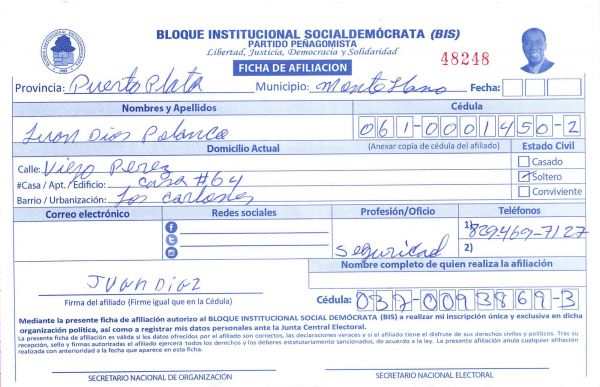 BLOQUE INSTITUCIONAL SOCIALDEMÓCRATA (BIS)
PARTIDO PEÑAGOMISTA
Libertad, Justicia, Democracia y Solidaridad
FICHA DE AFILIACION
48248
Provincia: Puerto Plata Municipio: Monte Llano Fecha:
Nombres y Apellidos Cédula
Juan Dios Polanco 061-0001450-2
Domicilio Actual (Anexar copia de cédula del afiliado) Estado Civil
Calle: Viejo Perez Casado
#Casa / Apt. / Edificio: casa #64 Soltero
Barrio / Urbanización: Los Conviviente
Correo electrónico Redes sociales Profesión/Oficio Teléfonos
1) 829-469-7127
Seguridad 2)
Nombre completo de quien realiza la afiliación
JUAN DIAZ
Firma del afiliado (Firme igual que en la Cédula) Cédula: 037-0093869-3
Mediante la presente ficha de afiliación autorizo al BLOQUE INSTITUCIONAL SOCIAL DEMÓCRATA (BIS) a realizar mi inscripción única y exclusiva en dicha
organización política, así como a registrar mis datos personales ante la Junta Central Electoral.
La presente ficha de afiliación es válida si los datos ofrecidos por el afiliado son correctos, las declaraciones veraces y si el afiliado tiene el disfrute de sus derechos civiles y políticos. Tras su
recepción, sello y firmas autorizadas el afiliado ejercerá todos los derechos y los deberes estatutariamente sancionados, de acuerdo a la ley. La presente afiliación anula cualquier afiliación
realizada con anterioridad a la fecha que aparece en esta ficha.
SECRETARIO NACIONAL DE ORGANIZACIÓN SECRETARIO NACIONAL ELECTORAL